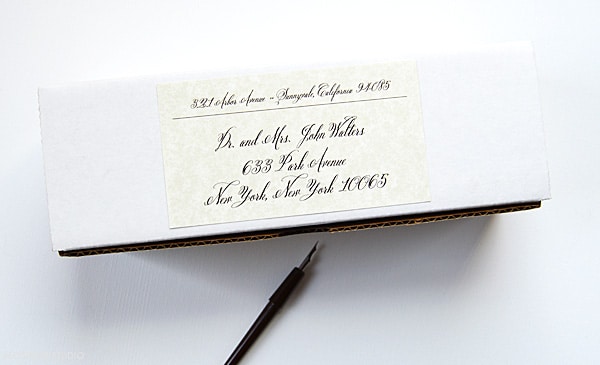 321 Arbor Avenue ~ Sunnyvale, California 94085
Dr. and Mrs. John Walters
633 Park Avenue
New York, New York 10065